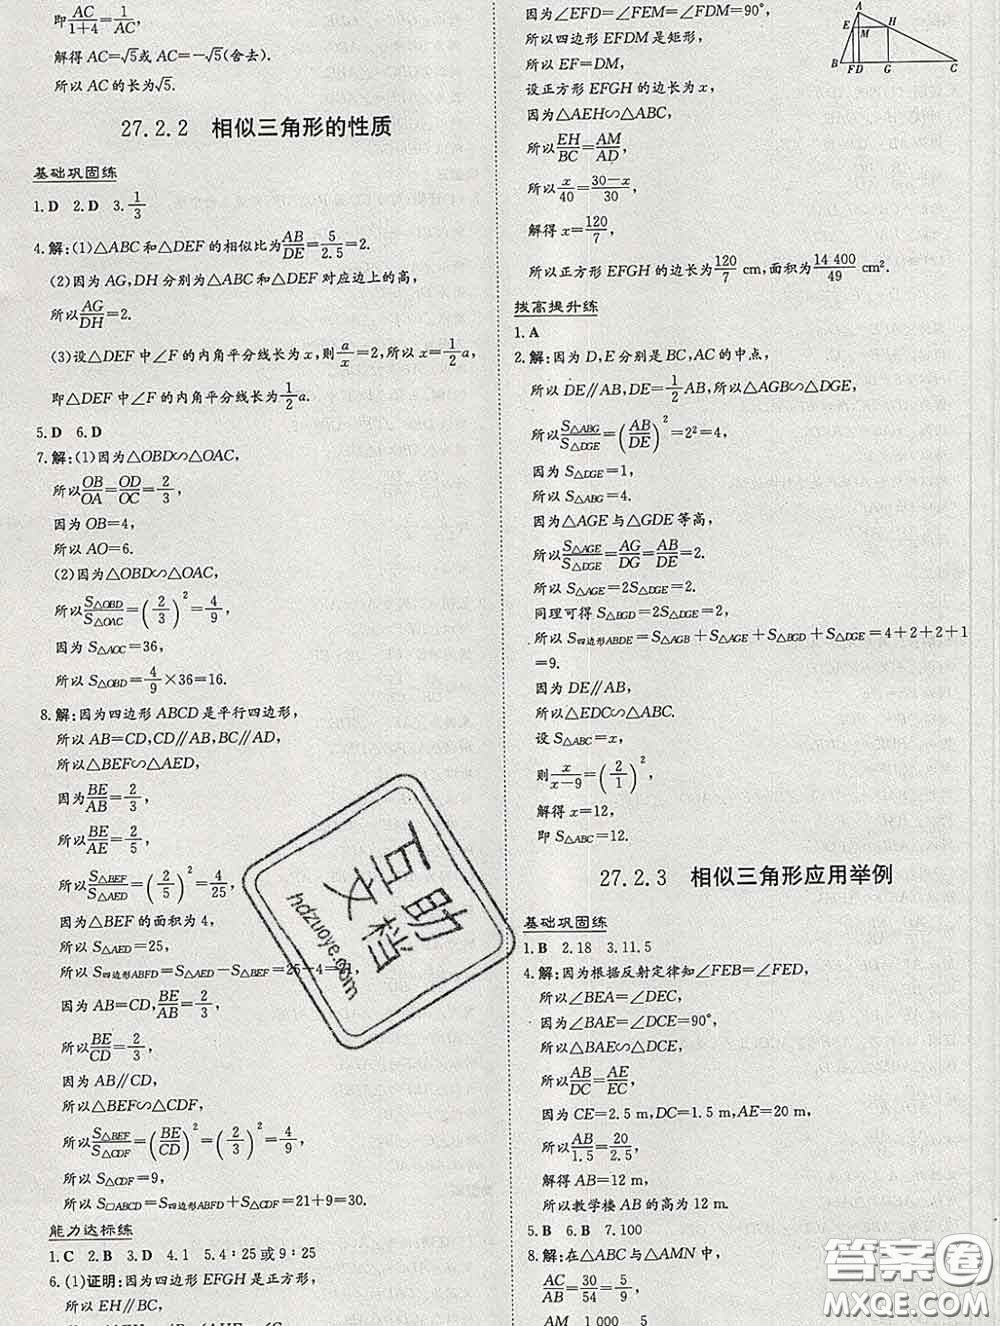 即AC/(1+4)=1/AC,
解得 AC=√5或 AC=-√5(舍去).
所以 AC 的长为√5.
27.2.2 相似三角形的性质
基础巩固练
1.D 2.D 3.1/3
4.解:(1)△ABC 和△DEF 的相似比为AB/DE=5/2.5=2.
(2)因为 AG,DH 分别为△ABC 和△DEF 对应边上的高,
所以AG/DH=2.
(3)设△DEF 中∠F 的内角平分线长为 x,则a/x=2,所以 x=1/2a,
即△DEF 中∠F 的内角平分线长为1/2a.
5.D 6.D
7.解:(1)因为△OBD∽△OAC,
所以OB/OA=OD/OC=2/3,
因为 OB=4,
所以 AO=6.
(2)因为△OBD∽△OAC,
所以S△OBD/S△OAC=(2/3)²=4/9,
因为 S△AOC=36,
所以 S△OBD=4/9×36=16.
8.解:因为四边形 ABCD 是平行四边形,
所以 AB=CD,CD∥AB,BC∥AD,
所以△BEF∽△AED,
因为BE/AB=2/3,
所以BE/AE=2/5,
所以S△BEF/S△AED=(2/5)²=4/25,
因为△BEF 的面积为 4,
所以 S△AED=25,
所以 S四边形ABFD=S△AED-S△BEF=25-4=21,
因为 AB=CD,BE/AB=2/3,
所以BE/CD=2/3,
因为 AB∥CD,
所以△BEF∽△CDF,
所以S△BEF/S△CDF=(BE/CD)²=(2/3)²=4/9,
所以 S△CDF=9,
所以 S□ABCD=S四边形ABFD+S△CDF=21+9=30.
能力达标练
1.C 2.B 3.D 4.1 5.4∶25或 9∶25
6.(1)证明:因为四边形 EFGH 是正方形,
所以 EH∥BC,
因为∠EFD=∠FEM=∠FDM=90°,
所以四边形 EFDM 是矩形,
所以 EF=DM,
设正方形 EFGH 的边长为 x,
因为△AEH∽△ABC,
所以EH/BC=AM/AD,
所以x/40=(30-x)/30,
解得 x=120/7,
所以正方形 EFGH 的边长为120/7 cm,面积为14 400/49 cm².
A
E M H
B F D G C
拔高提升练
1.A
2.解:因为 D,E 分别是 BC,AC 的中点,
所以 DE∥AB,DE=1/2AB,所以△AGB∽△DGE,
所以S△ABG/S△DGE=(AB/DE)²=2²=4,
因为 S△DGE=1,
所以 S△ABG=4.
因为△AGE 与△GDE 等高,
所以S△AGE/S△DGE=AG/DG=AB/DE=2.
所以 S△AGE=2S△DGE=2.
同理可得 S△BGD=2S△DGE=2,
所以 S四边形ABDE=S△AGB+S△AGE+S△BGD+S△DGE=4+2+2+1
=9.
因为 DE∥AB,
所以△EDC∽△ABC.
设 S△ABC=x,
则x/(x-9)=(2/1)²,
解得 x=12,
即 S△ABC=12.
27.2.3 相似三角形应用举例
基础巩固练
1.B 2.18 3.11.5
4.解:因为根据反射定律知∠FEB=∠FED,
所以∠BEA=∠DEC,
因为∠BAE=∠DCE=90°,
所以△BAE∽△DCE,
所以AB/DC=AE/EC,
因为 CE=2.5 m,DC=1.5 m,AE=20 m,
所以AB/1.5=20/2.5,
解得 AB=12 m,
所以教学楼 AB 的高为 12 m.
5.B 6.B 7.100
8.解:在△ABC 与△AMN 中,
AC/AB=30/54=5/9,
AM 1 000 5
互助文档
hdzuoye.com
答案圈
MXQE.COM